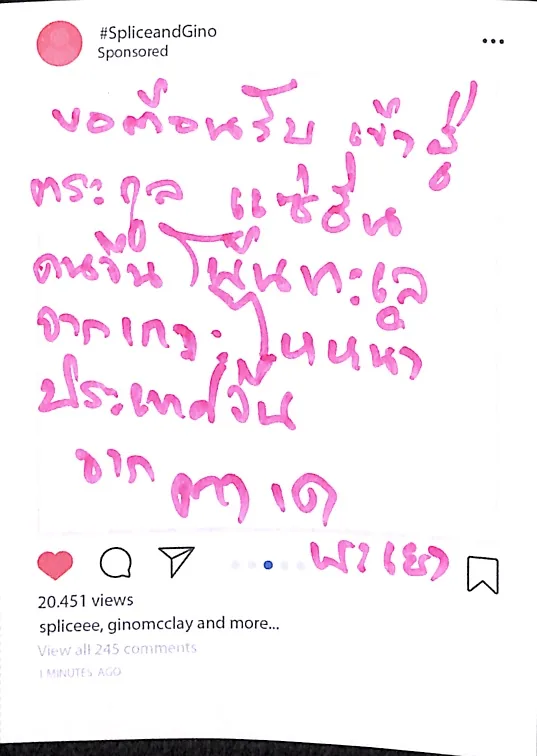 #SpliceandGino
Sponsored
ขอต้อนรับ เข้าสู่
ตระกูล แซ่อื่น
คนจีน โพ้นทะเล
จากเกาะไหหนำ
ประเทศจีน
จาก ตาเด
พาเยา
20.451 views
spliceee, ginomcclay and more...
View all 245 comments
1 MINUTES AGO